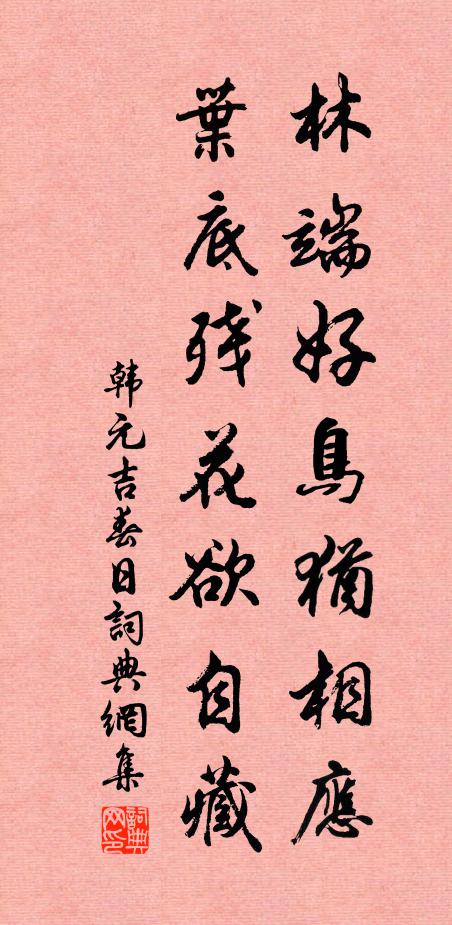 林端好鳥猶相應
葉底残花欲自藏
韩元吉春日詞典網集
詞典
网印